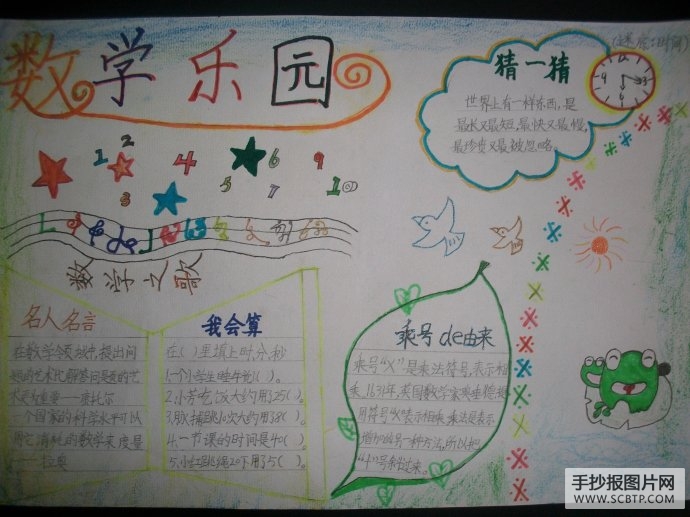 数学乐园
猜一猜
世界上有一样东西,是
最长又最短,最快又最慢,
最珍贵又最被忽略。
1 2 3 4 5 6 7 9 10
数学之歌
名人名言
在数学领域中,提出问
题的艺术比解答问题的艺
术更为重要——康托尔
一个国家的科学水平可以
用它消耗的数学来度量
——拉奥
我会算
在( )里填上时、分、秒
1.一个小学生睡午觉1( )。
2.小芳吃饭大约用25( )。
3.肌捕跳10次大约用38( )。
4.一节课的时间是40( )。
5.小红跳绳20下用了5( )。
乘号de由来
乘号“X”是乘法符号,表示相
乘,1631年,英国数学家奥垂德提
用符号“X”表示相乘。乘法是表示
增加的另一种方法,所以把
“十”号斜过来。
手抄报图片网
WWW.SCBTP.COM